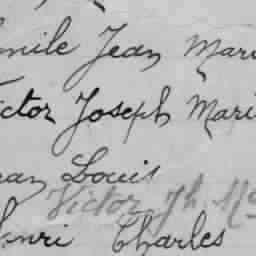 Emile Jean Mari
ictor Joseph Mari
ean Louis
Victor Jh. Ma
Henri Charles